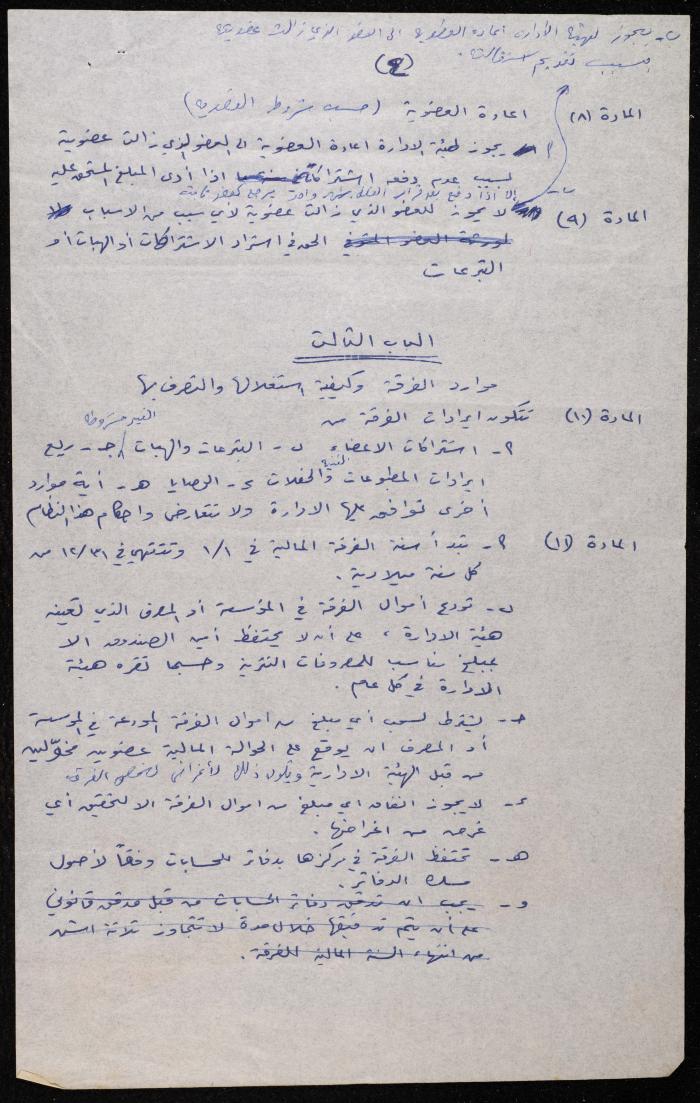 ب- يجوز لهيئة الادارة اعادة العضوية الى العضو الذي زالت عضويته
بسبب تقديم استقالته.
(٤)
المادة (٨) اعادة العضوية (حسب شروط العضوية)
أ- يجوز لهيئة الادارة اعادة العضوية الى العضو الذي زالت عضويته
بسبب عدم دفعه اشتراكاته اذا أدى المبلغ المستحق عليه
المادة (٩) لا يجوز للعضو الذي زالت عضويته لأي سبب من الاسباب
لورثة العضو المتوفي الحق في استرداد الاشتراكات أو الهبات أو
التبرعات
الباب الثالث
موارد الفرقة وكيفية استغلالها والتصرف بها
المادة (١٠) تتكون ايرادات الفرقة من
الغير مشروطة
أ- اشتراكات الاعضاء ب- التبرعات والهبات / جـ- ريع
ايرادات المطبوعات والحفلات الفنية د- الوصايا هـ- أية موارد
أخرى توافق عليها الادارة ولا تتعارض واحكام هذا النظام
المادة (١١) أ- تبدأ سنة الفرقة المالية في ١/١ وتنتهي في ١٢/٣١ من
كل سنة ميلادية.
ب- تودع أموال الفرقة في المؤسسة أو المصرف الذي تعينه
هيئة الادارة، على أن لا يحتفظ أمين الصندوق الا
بمبلغ مناسب للمصروفات النثرية وحسبما تقره هيئة
الادارة في كل عام.
جـ- يشترط لسحب أي مبلغ من اموال الفرقة المودعة في المؤسسة
أو المصرف ان يوقع على الحوالة المالية عضوين مخوّلين
من قبل الهيئة الادارية ويكون ذلك لأغراض تخص الفرقة
د- لا يجوز انفاق اي مبلغ من اموال الفرقة الا لتحقيق أي
غرض من اغراضها.
هـ- تحتفظ الفرقة في مركزها بدفاتر للحسابات وفقاً لأصول
مسك الدفاتر.
و- يجب ان تدقق دفاتر الحسابات من قبل مدقق قانوني
على أن يتم تدقيقها خلال مدة لا تتجاوز ثلاثة اشهر
من انتهاء السنة المالية للفرقة.